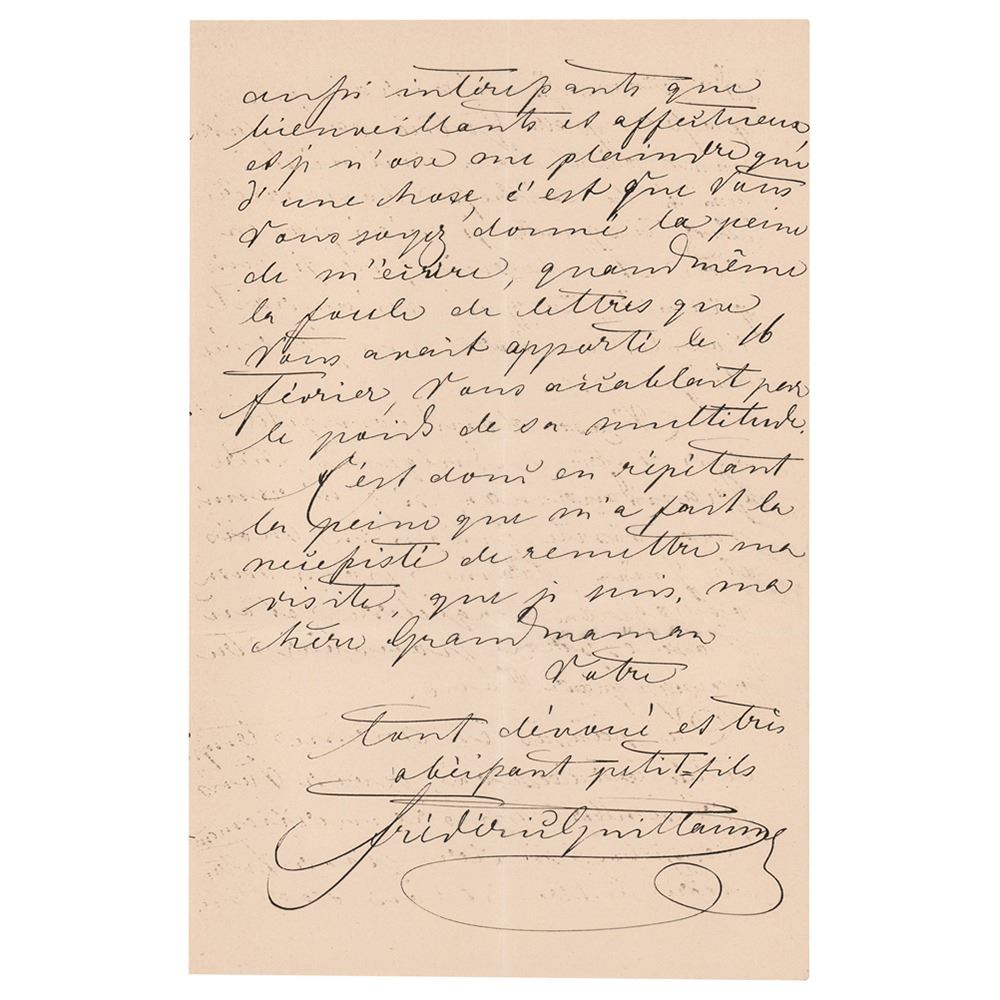 aussi intéressants que
bienveillants et affectueux
et je n'ose me plaindre que
d'une chose, c'est que Vous
Vous soyez donné la peine
de m'écrire, quandmême
la foule de lettres que
Vous avait apporté le 16
février, Vous accablait par
le poids de sa multitude.
C'est donc en répétant
la peine que m'a fait la
nécessité de remettre ma
visite, que je suis, ma
chère Grandmaman
Votre
tout dévoué et très
obéissant petit-fils
Frédéric Guillaume